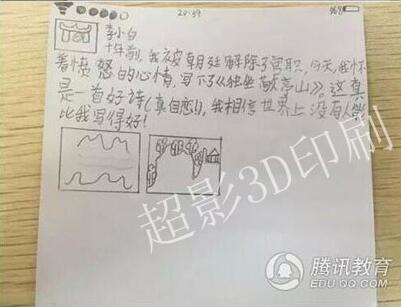 20:59
李小白
十年前，我被朝廷解除了官职，今天，我怀
着愤怒的心情，写下了《独坐敬亭山》。这真
是一首好诗（真自恋!)，我相信世界上没有人能
比我写得好！
超影3D印刷
腾讯教育
EDU.QQ.COM